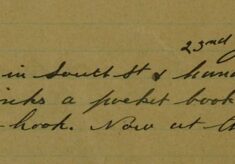 23rd
in South St & hand
inks a pocket book
hook. Now at